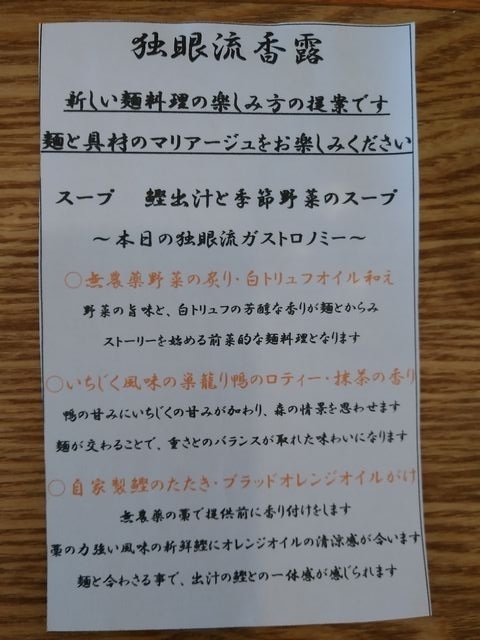 独眼流香露
新しい麺料理の楽しみ方の提案です
麺と具材のマリアージュをお楽しみください
スープ 鰹出汁と季節野菜のスープ
～本日の独眼流ガストロノミー～
○無農薬野菜の炙り・白トリュフオイル和え
野菜の旨味と、白トリュフの芳醇な香りが麺とからみ
ストーリーを始める前菜的な麺料理となります
○いちじく風味の巣籠り鴨のロティー・抹茶の香り
鴨の甘みにいちじくの甘みが加わり、森の情景を思わせます
麺が交わることで、重さとのバランスが取れた味わいになります
○自家製鰹のたたき・ブラッドオレンジオイルがけ
無農薬の藁で提供前に香り付けをします
藁の力強い風味の新鮮鰹にオレンジオイルの清涼感が合います
麺と合わさる事で、出汁の鰹との一体感が感じられます